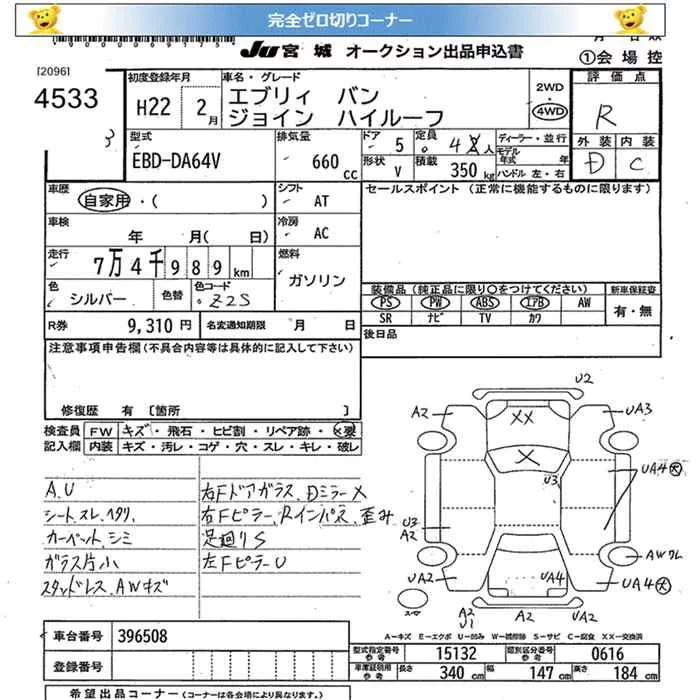 完全ゼロ切りコーナー
JU 宮城 オークション出品申込書
①会場控
[2096]
4533
初度登録年月
H22 2月
車名・グレード
エブリィ バン
ジョイン ハイルーフ
2WD
4WD
評価点
R
外装 内装
D C
型式
EBD-DA64V
排気量
660 cc
ドア
5
定員
4人
ディーラー・並行
モデル年式 年
ハンドル 左・右
形状
V
積載
350 kg
車歴
自家用・( )
シフト
AT
セールスポイント (正常に機能するものに限ります)
車検
年 月( 日)
冷房
AC
走行
7万4千989km
燃料
ガソリン
色
シルバー
色替
色コード
Z2S
装備品 (純正品に限り〇をつけてください)
新車保証書
PS PW ABS エアB AW
有・無
SR ナビ TV カワ
R券
9,310円
名変通知期限 月 日
後日品
注意事項申告欄 (不具合内容等は具体的に記入して下さい)
修復歴 有 [箇所 ]
検査員
記入欄
FW キズ・飛石・ヒビ割・リペア跡・×要
内装 キズ・汚レ・コゲ・穴・スレ・キレ・破レ
A.U
シート.スレ.ヘタリ.
カーペット.シミ
ガラス片小
スタッドレス.AWキズ
右Fドアガラス.Dミラー×
右Fピラー.Rインパネ.歪み
足廻りS
左FピラーU
U2
A2
XX
UA3
X
U3
UA4大
U3
A2
AWワレ
UA2
UA4
UA4大
スマ
A2
U1
A2
UA2
A－キズ E－エクボ U－凹み W－補修跡 S－サビ C－腐食 XX－交換済
車台番号
396508
型式指定番号 参考
15132
類別区分番号 参考
0616
登録番号
車庫証明用 参考
長さ 340 cm 幅 147 cm 高さ 184 cm
希望出品コーナー (コーナーは各会場により異なります。)